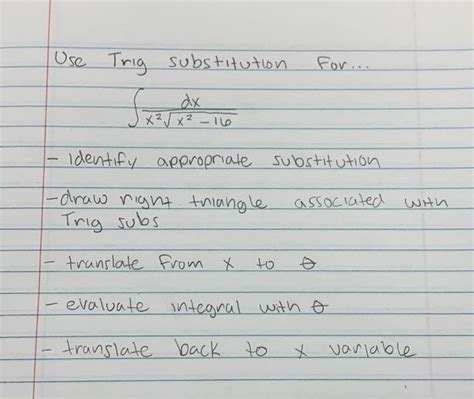 Use Trig substitution For...
∫ dx / x²√x² - 16
- identify appropriate substitution
- draw right triangle associated with
Trig subs
- translate From x to θ
- evaluate integral with θ
- translate back to x variable